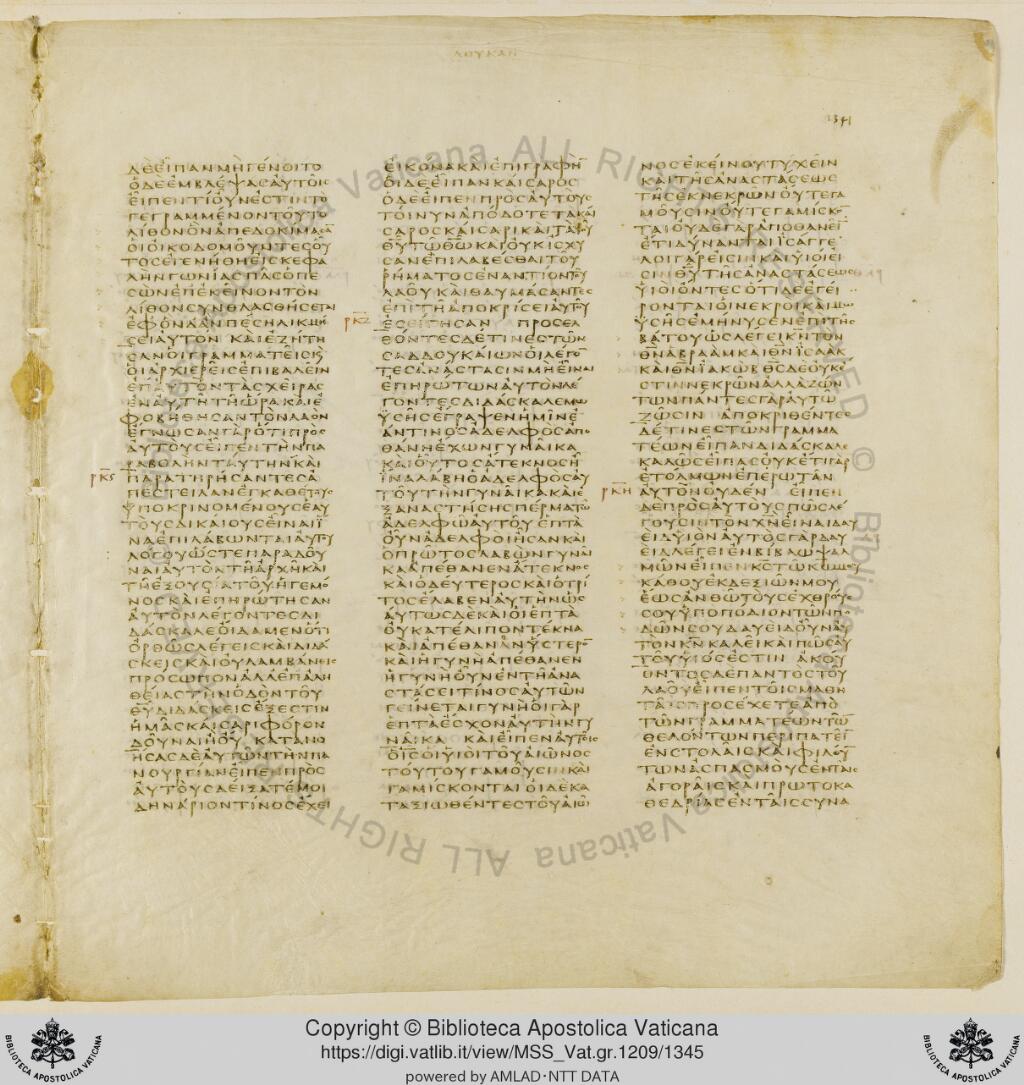 ΛΟΥΚΑΝ
1341
ΔΕΕΙΠΑΝΜΗΓΕΝΟΙΤΟ
ΟΔΕΕΜΒΛΕΨΑΣΑΥΤΟΙΣ
ΕΙΠΕΝΤΙΟΥΝΕΣΤΙΝΤΟ
ΓΕΓΡΑΜΜΕΝΟΝΤΟΥΤΟ
ΛΙΘΟΝΟΝΑΠΕΔΟΚΙΜΑΣΑ
ΟΙΟΙΚΟΔΟΜΟΥΝΤΕΣΟΥ
ΤΟΣΕΓΕΝΗΘΗΕΙΣΚΕΦΑ
ΛΗΝΓΩΝΙΑΣΠΑΣΟΠΕ
ΣΩΝΕΠΕΚΕΙΝΟΝΤΟΝ
ΛΙΘΟΝΣΥΝΘΛΑΣΘΗΣΕΤΑΙ
ΕΦΟΝΔΑΝΠΕΣΗΛΙΚΜΗ
ΣΕΙΑΥΤΟΝ ΚΑΙΕΖΗΤΗ
ΣΑΝΟΙΓΡΑΜΜΑΤΕΙΣΚ
ΟΙΑΡΧΙΕΡΕΙΣΕΠΙΒΑΛΕΙΝ
ΕΠΑΥΤΟΝΤΑΣΧΕΙΡΑΣ
ΕΝΑΥΤΗΤΗΩΡΑΚΑΙΕ
ΦΟΒΗΘΗΣΑΝΤΟΝΛΑΟΝ
ΕΓΝΩΣΑΝΓΑΡΟΤΙΠΡΟΣ
ΑΥΤΟΥΣΕΙΠΕΝΤΗΝΠΑ
ΡΑΒΟΛΗΝΤΑΥΤΗΝΚΑΙ
ΡΚϚ ΠΑΡΑΤΗΡΗΣΑΝΤΕΣΑ
ΠΕΣΤΕΙΛΑΝΕΓΚΑΘΕΤΟΥΣ
ΥΠΟΚΡΙΝΟΜΕΝΟΥΣΕΑΥ
ΤΟΥΣΔΙΚΑΙΟΥΣΕΙΝΑΙΪ
ΝΑΕΠΙΛΑΒΩΝΤΑΙΑΥΤΟΥ
ΛΟΓΟΥΩΣΤΕΠΑΡΑΔΟΥ
ΝΑΙΑΥΤΟΝΤΗΑΡΧΗΚΑΙ
ΤΗΕΞΟΥΣΙΑΤΟΥΗΓΕΜΟ
ΝΟΣΚΑΙΕΠΗΡΩΤΗΣΑΝ
ΑΥΤΟΝΛΕΓΟΝΤΕΣΔΙ
ΔΑΣΚΑΛΕΟΙΔΑΜΕΝΟΤΙ
ΟΡΘΩΣΛΕΓΕΙΣΚΑΙΔΙΔΑ
ΣΚΕΙΣΚΑΙΟΥΛΑΜΒΑΝΕΙΣ
ΠΡΟΣΩΠΟΝΑΛΛΕΠΑΛΗ
ΘΕΙΑΣΤΗΝΟΔΟΝΤΟΥ
ΘΥΔΙΔΑΣΚΕΙΣΕΞΕΣΤΙΝ
ΗΜΑΣΚΑΙΣΑΡΙΦΟΡΟΝ
ΔΟΥΝΑΙΗΟΥ ΚΑΤΑΝΟ
ΗΣΑΣΔΕΑΥΤΩΝΤΗΝΠΑ
ΝΟΥΡΓΙΑΝΕΙΠΕΝΠΡΟΣ
ΑΥΤΟΥΣΔΕΙΞΑΤΕΜΟΙ
ΔΗΝΑΡΙΟΝΤΙΝΟΣΕΧΕΙ
ΕΙΚΟΝΑΚΑΙΕΠΙΓΡΑΦΗΝ
ΟΙΔΕΕΙΠΑΝΚΑΙΣΑΡΟΣ
ΟΔΕΕΙΠΕΝΠΡΟΣΑΥΤΟΥΣ
ΤΟΙΝΥΝΑΠΟΔΟΤΕΤΑΚΑΙ
ΣΑΡΟΣΚΑΙΣΑΡΙΚΑΙΤΑΤΟΥ
ΘΥΤΩΘΩΚΑΙΟΥΚΙΣΧΥ
ΣΑΝΕΠΙΛΑΒΕΣΘΑΙΤΟΥ
ΡΗΜΑΤΟΣΕΝΑΝΤΙΟΝΤΟΥ
ΛΑΟΥΚΑΙΘΑΥΜΑΣΑΝΤΕΣ
ΕΠΙΤΗΑΠΟΚΡΙΣΕΙΑΥΤΟΥ
ΡΚΖ ΕΣΕΙΓΗΣΑΝ ΠΡΟΣΕΛ
ΘΟΝΤΕΣΔΕΤΙΝΕΣΤΩΝ
ΣΑΔΔΟΥΚΑΙΩΝΟΙΛΕΓΟ
ΤΕΣΑΝΑΣΤΑΣΙΝΜΗΕΙΝΑΙ
ΕΠΗΡΩΤΩΝΑΥΤΟΝΛΕ
ΓΟΝΤΕΣΔΙΔΑΣΚΑΛΕΜΩ
ΥΣΗΣΕΓΡΑΨΕΝΗΜΙΝΕ
ΑΝΤΙΝΟΣΑΔΕΛΦΟΣΑΠΟ
ΘΑΝΗΕΧΩΝΓΥΝΑΙΚΑ
ΚΑΙΟΥΤΟΣΑΤΕΚΝΟΣΗ
ΙΝΑΛΑΒΗΟΑΔΕΛΦΟΣΑΥ
ΤΟΥΤΗΝΓΥΝΑΙΚΑΚΑΙΕ
ΞΑΝΑΣΤΗΣΗΣΠΕΡΜΑΤΩ
ΑΔΕΛΦΩΑΥΤΟΥΕΠΤΑ
ΟΥΝΑΔΕΛΦΟΙΗΣΑΝΚΑΙ
ΟΠΡΩΤΟΣΛΑΒΩΝΓΥΝΑΙ
ΚΑΑΠΕΘΑΝΕΝΑΤΕΚΝΟΣ
ΚΑΙΟΔΕΥΤΕΡΟΣΚΑΙΟΤΡΙ
ΤΟΣΕΛΑΒΕΝΑΥΤΗΝΩΣ
ΑΥΤΩΣΔΕΚΑΙΟΙΕΠΤΑ
ΟΥΚΑΤΕΛΙΠΟΝΤΕΚΝΑ
ΚΑΙΑΠΕΘΑΝΑΝΥΣΤΕΡΟ
ΚΑΙΗΓΥΝΗΑΠΕΘΑΝΕΝ
ΗΓΥΝΗΟΥΝΕΝΤΗΑΝΑ
ΣΤΑΣΕΙΤΙΝΟΣΑΥΤΩΝ
ΓΕΙΝΕΤΑΙΓΥΝΗΟΙΓΑΡ
ΕΠΤΑΕΣΧΟΝΑΥΤΗΝΓΥ
ΝΑΙΚΑ ΚΑΙΕΙΠΕΝΑΥΤΟΙΣ
ΟΙΣΟΙΥΙΟΙΤΟΥΑΙΩΝΟΣ
ΤΟΥΤΟΥΓΑΜΟΥΣΙΝΚΑΙ
ΓΑΜΙΣΚΟΝΤΑΙΟΙΔΕΚΑ
ΤΑΞΙΩΘΕΝΤΕΣΤΟΥΑΙΩ
ΝΟΣΕΚΕΙΝΟΥΤΥΧΕΙΝ
ΚΑΙΤΗΣΑΝΑΣΤΑΣΕΩΣ
ΤΗΣΕΚΝΕΚΡΩΝΟΥΤΕΓΑ
ΜΟΥΣΙΝΟΥΤΕΓΑΜΙΣΚΟ
ΤΑΙΟΥΔΕΓΑΡΑΠΟΘΑΝΕΙ
ΕΤΙΔΥΝΑΝΤΑΙΙΣΑΓΓΕ
ΛΟΙΓΑΡΕΙΣΙΝΚΑΙΥΙΟΙΕΙ
ΣΙΝΘΥΤΗΣΑΝΑΣΤΑΣΕΩΣ
ΥΙΟΙΟΝΤΕΣΟΤΙΔΕΕΓΕΙ
ΡΟΝΤΑΙΟΙΝΕΚΡΟΙΚΑΙΜΩ
ΥΣΗΣΕΜΗΝΥΣΕΝΕΠΙΤΗΣ
ΒΑΤΟΥΩΣΛΕΓΕΙΚΝΤΟΝ
ΘΝΑΒΡΑΑΜΚΑΙΘΝΙΣΑΑΚ
ΚΑΙΘΝΙΑΚΩΒΘΣΔΕΟΥΚΕ
ΣΤΙΝΝΕΚΡΩΝΑΛΛΑΖΩΝ
ΤΩΝΠΑΝΤΕΣΓΑΡΑΥΤΩ
ΖΩΣΙΝ ΑΠΟΚΡΙΘΕΝΤΕΣ
ΔΕΤΙΝΕΣΤΩΝΓΡΑΜΜΑ
ΤΕΩΝΕΙΠΑΝΔΙΔΑΣΚΑΛΕ
ΚΑΛΩΣΕΙΠΑΣΟΥΚΕΤΙΓΑΡ
ΕΤΟΛΜΩΝΕΠΕΡΩΤΑΝ
ΡΚΗ ΑΥΤΟΝΟΥΔΕΝ ΕΙΠΕΝ
ΔΕΠΡΟΣΑΥΤΟΥΣΠΩΣΛΕ
ΓΟΥΣΙΝΤΟΝΧΝΕΙΝΑΙΔΑΥ
ΕΙΔΥΙΟΝΑΥΤΟΣΓΑΡΔΑΥ
ΕΙΔΛΕΓΕΙΕΝΒΙΒΛΩΨΑΛ
ΜΩΝΕΙΠΕΝΚΣΤΩΚΩΜΟΥ
ΚΑΘΟΥΕΚΔΕΞΙΩΝΜΟΥ
ΕΩΣΑΝΘΩΤΟΥΣΕΧΘΡΟΥΣ
ΣΟΥΥΠΟΠΟΔΙΟΝΤΩΝΠΟ
ΔΩΝΣΟΥΔΑΥΕΙΔΟΥΝΑΥ
ΤΟΝΚΝΚΑΛΕΙΚΑΙΠΩΣΑΥ
ΤΟΥΥΙΟΣΕΣΤΙΝ ΑΚΟΥ
ΟΝΤΟΣΔΕΠΑΝΤΟΣΤΟΥ
ΛΑΟΥΕΙΠΕΝΤΟΙΣΜΑΘΗ
ΤΑΙΣΠΡΟΣΕΧΕΤΕΑΠΟ
ΤΩΝΓΡΑΜΜΑΤΕΩΝΤΩ
ΘΕΛΟΝΤΩΝΠΕΡΙΠΑΤΕΙ
ΕΝΣΤΟΛΑΙΣΚΑΙΦΙΛΟΥ
ΤΩΝΑΣΠΑΣΜΟΥΣΕΝΤΑΙΣ
ΑΓΟΡΑΙΣΚΑΙΠΡΩΤΟΚΑ
ΘΕΔΡΙΑΣΕΝΤΑΙΣΣΥΝΑ
Biblioteca Apostolica Vaticana ALL RIGHTS RESERVED ©
Copyright © Biblioteca Apostolica Vaticana
https://digi.vatlib.it/view/MSS_Vat.gr.1209/1345
powered by AMLAD・NTT DATA
BIBLIOTECA APOSTOLICA VATICANA
BIBLIOTECA APOSTOLICA VATICANA